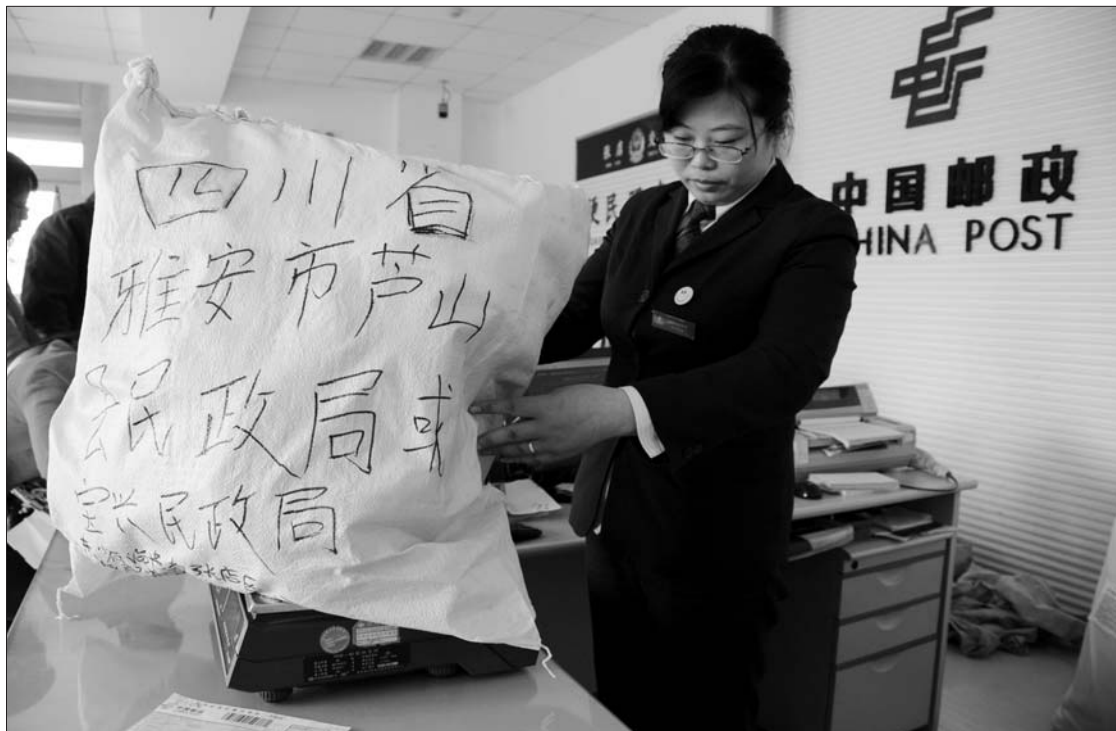 四川省
雅安市芦山
县民政局或
宝兴民政局
中国邮政
CHINA POST
便民